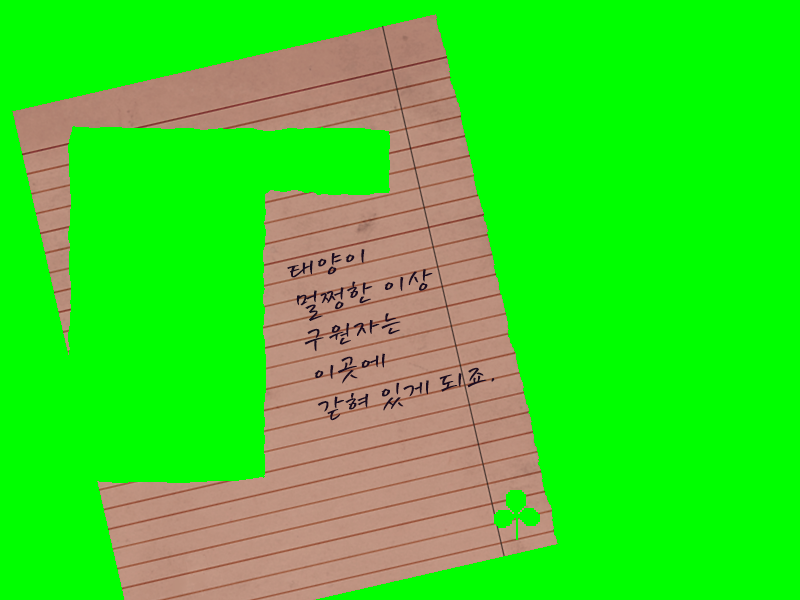 태양이
멀쩡한 이상
구원자는
이곳에
갇혀 있게 되죠.